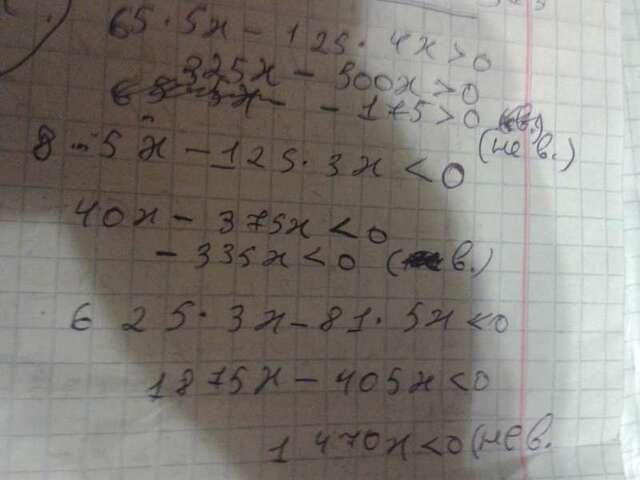 65·5x - 125·4x > 0
325x - 500x > 0
- 175 > 0 (не в.)
8·5x - 125·3x < 0
40x - 375x < 0
- 335x < 0 (в.)
625·3x - 81·5x < 0
1875x - 405x < 0
1470x < 0 (не в.